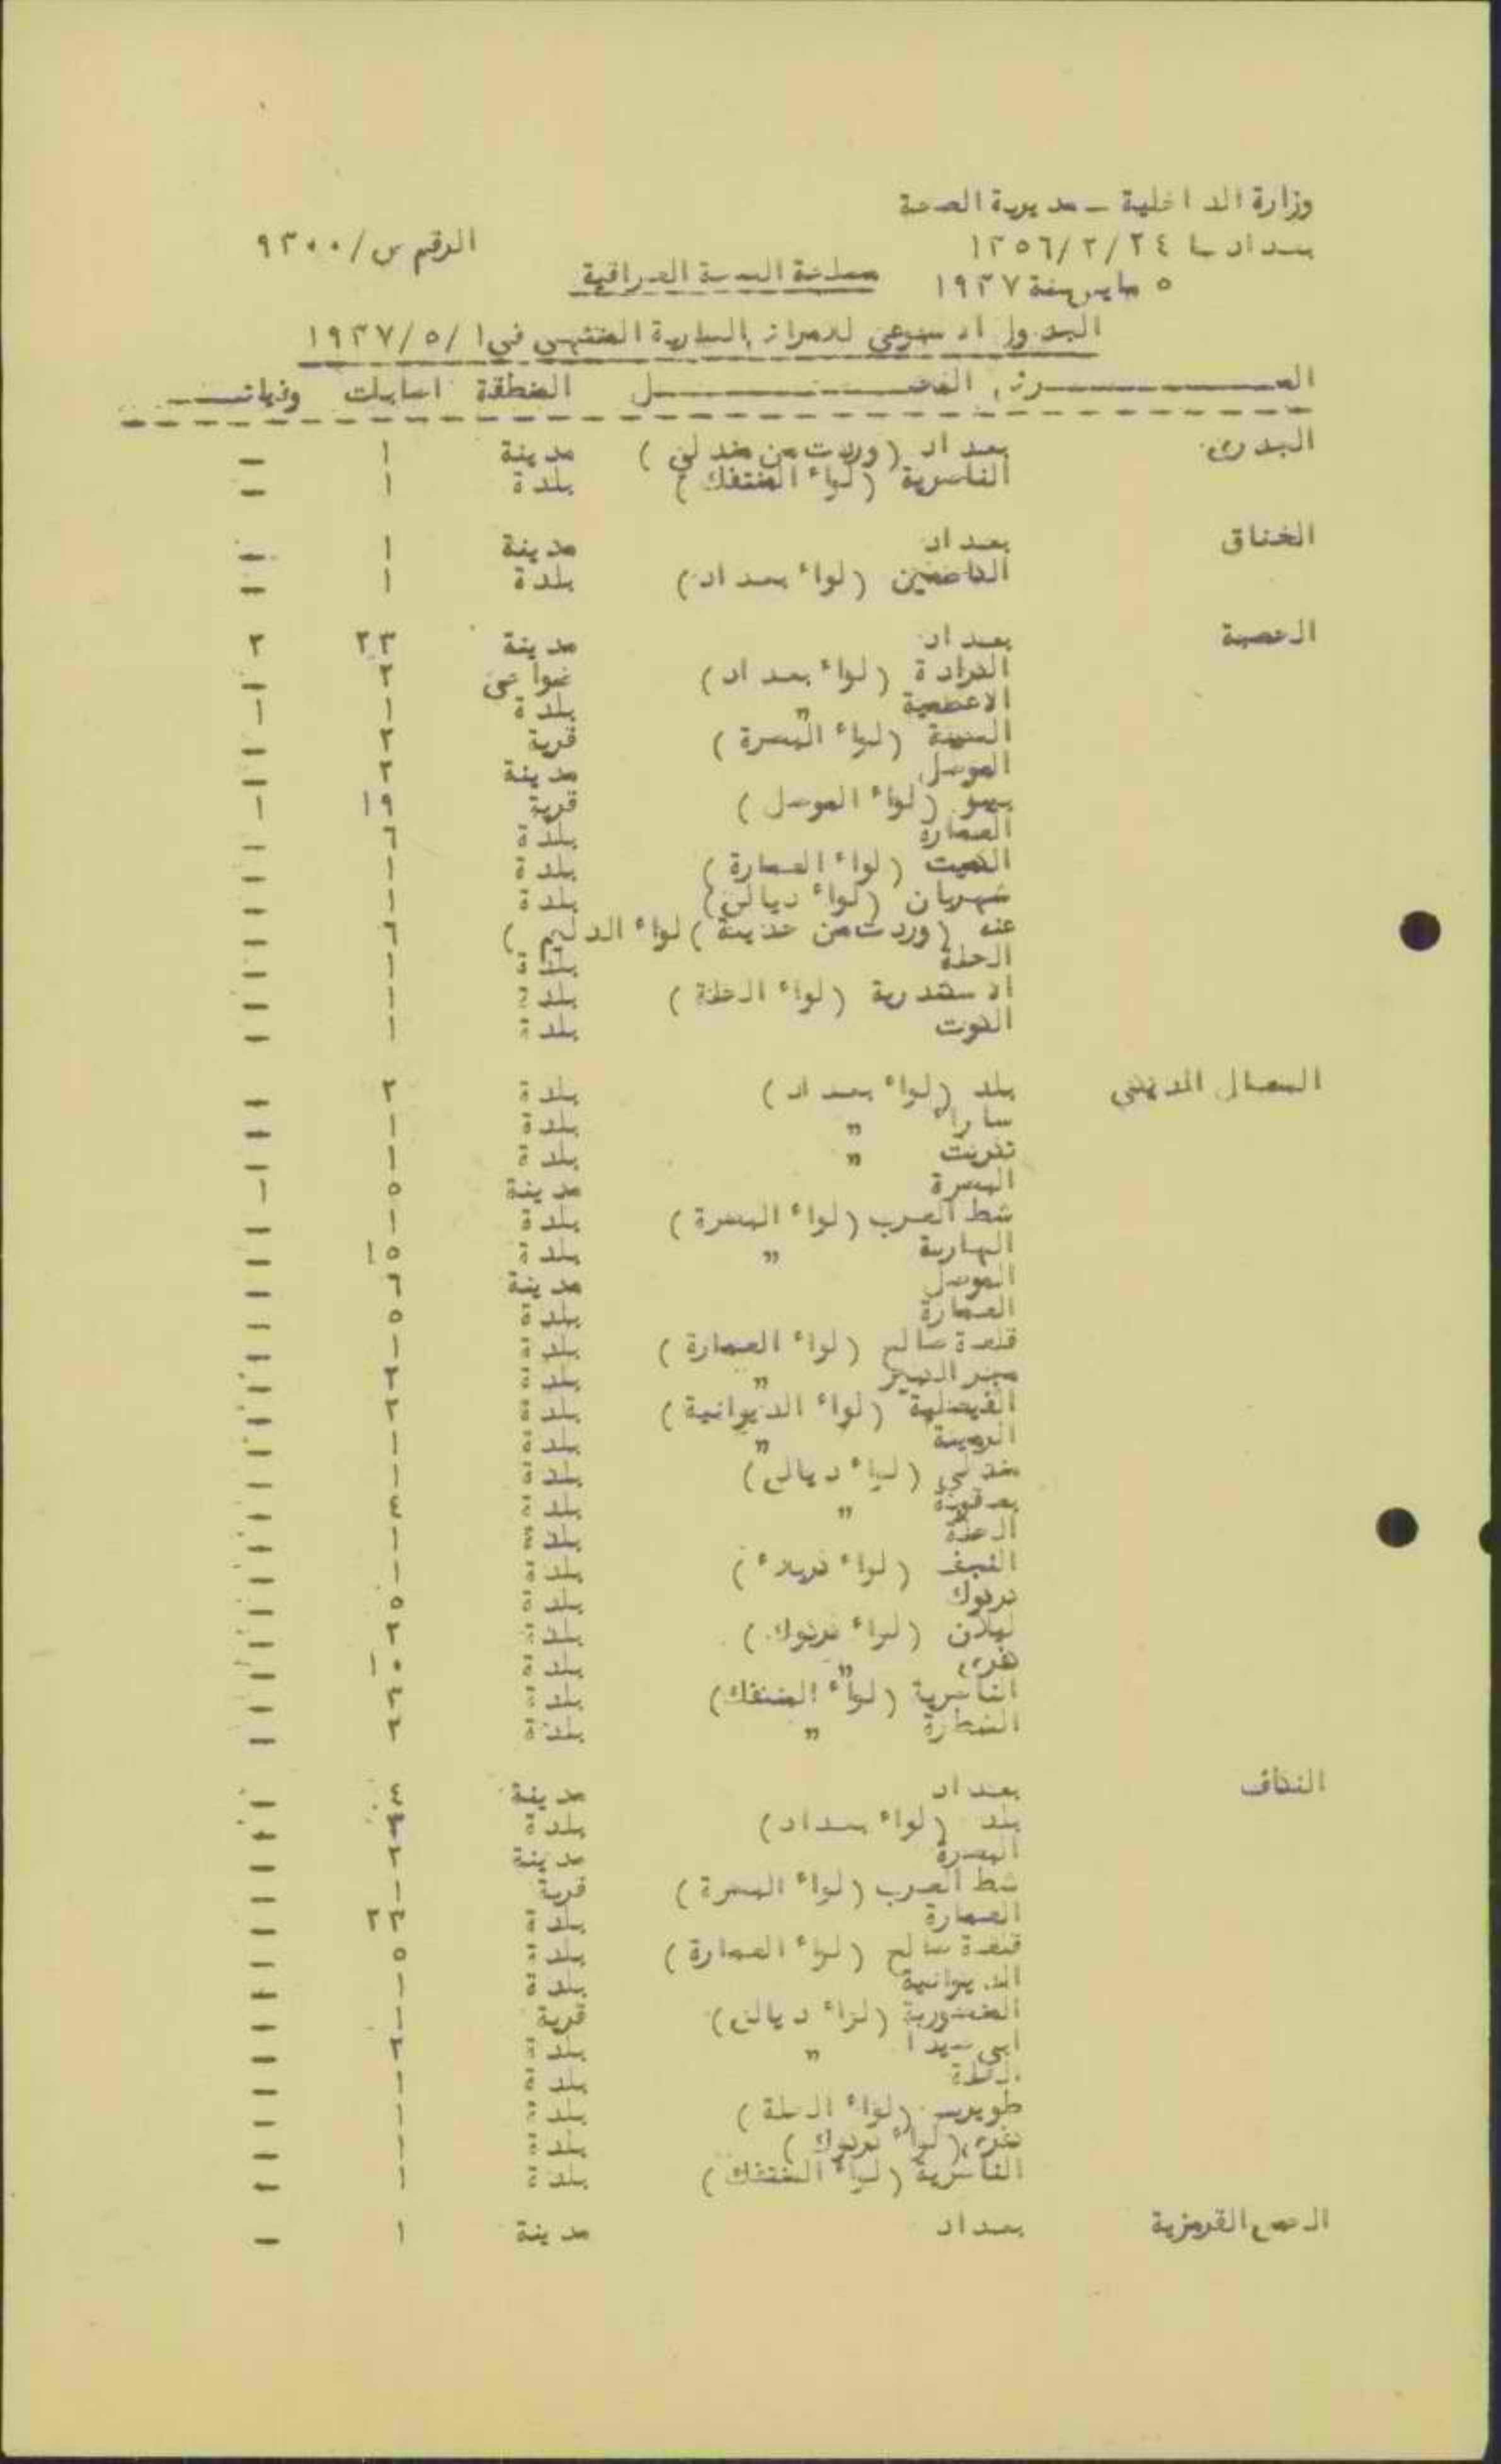 وزارة الداخلية - مديرية الصحة
بغداد في ٢٤/٢/١٣٥٦ الرقم س/٩٣٠٠
٥ مايس سنة ١٩٣٧ مصلحة الصحة العراقية
الجدول الاسبوعي للامراض السارية المنتهي في ١/٥/١٩٣٧
المرض المحل المنطقة اصابات وفيات
الجدري بغداد (وردت من مندلي) مدينة ١ -
الناصرية (لواء المنتفك) بلدة ١ -
الخناق بغداد مدينة ١ -
الكاظمين (لواء بغداد) بلدة ١ -
الحصبة بغداد مدينة ٢٣ ٢
الكرادة (لواء بغداد) ضواحي ٢ -
الاعظمية " بلدة ١ ١
السيبة (لواء البصرة) قرية ٢ -
الموصل مدينة ٢ -
(لواء الموصل) قرية ١٩ ١
العمارة بلدة ٦ -
الكميت (لواء العمارة) بلدة ١ -
شهربان (لواء ديالى) بلدة ١ -
عنه (وردت من حديثة) لواء الدليم) ٦ -
الحلة بلدة ١ -
الاسكندرية (لواء الحلة) بلدة ١ -
الكوت بلدة ١ -
السعال الديكي بلد (لواء بغداد) بلدة ٢ -
سامراء " بلدة ١ -
تكريت " بلدة ١ -
البصرة مدينة ٥ ١
شط العرب (لواء البصرة) بلدة ١ -
الهارثة " بلدة ١٥ -
الموصل مدينة ٦ -
العمارة بلدة ٥ -
قلعة صالح (لواء العمارة) بلدة ١ -
مجر الكبير " بلدة ٢ -
الفيصلية (لواء الديوانية) بلدة ٢ -
الرميثة " بلدة ١ -
مندلي (لواء ديالى) بلدة ١ -
بعقوبة " بلدة ٤ -
الحلة بلدة ١ -
النجف (لواء كربلاء) بلدة ١ -
كركوك بلدة ٥ -
ليلان (لواء كركوك) بلدة ٢ -
كفري " بلدة ١٠ -
الناصرية (لواء المنتفك) بلدة ٣ -
الشطرة " بلدة ٢ -
النكاف بغداد مدينة ٤ -
بلد (لواء بغداد) بلدة ٣ -
البصرة مدينة ٢ -
شط العرب (لواء البصرة) قرية ١ -
العمارة بلدة ٢٣ -
قلعة صالح (لواء العمارة) بلدة ٥ -
الديوانية بلدة ١ -
المنصورية (لواء ديالى) قرية ١ -
ابي صيدا " بلدة ٢ -
الحلة بلدة ١ -
طويريج (لواء الحلة) بلدة ١ -
كفري (لواء كركوك) بلدة ١ -
الناصرية (لواء المنتفك) بلدة ١ -
الحمى القرمزية بغداد مدينة ١ -